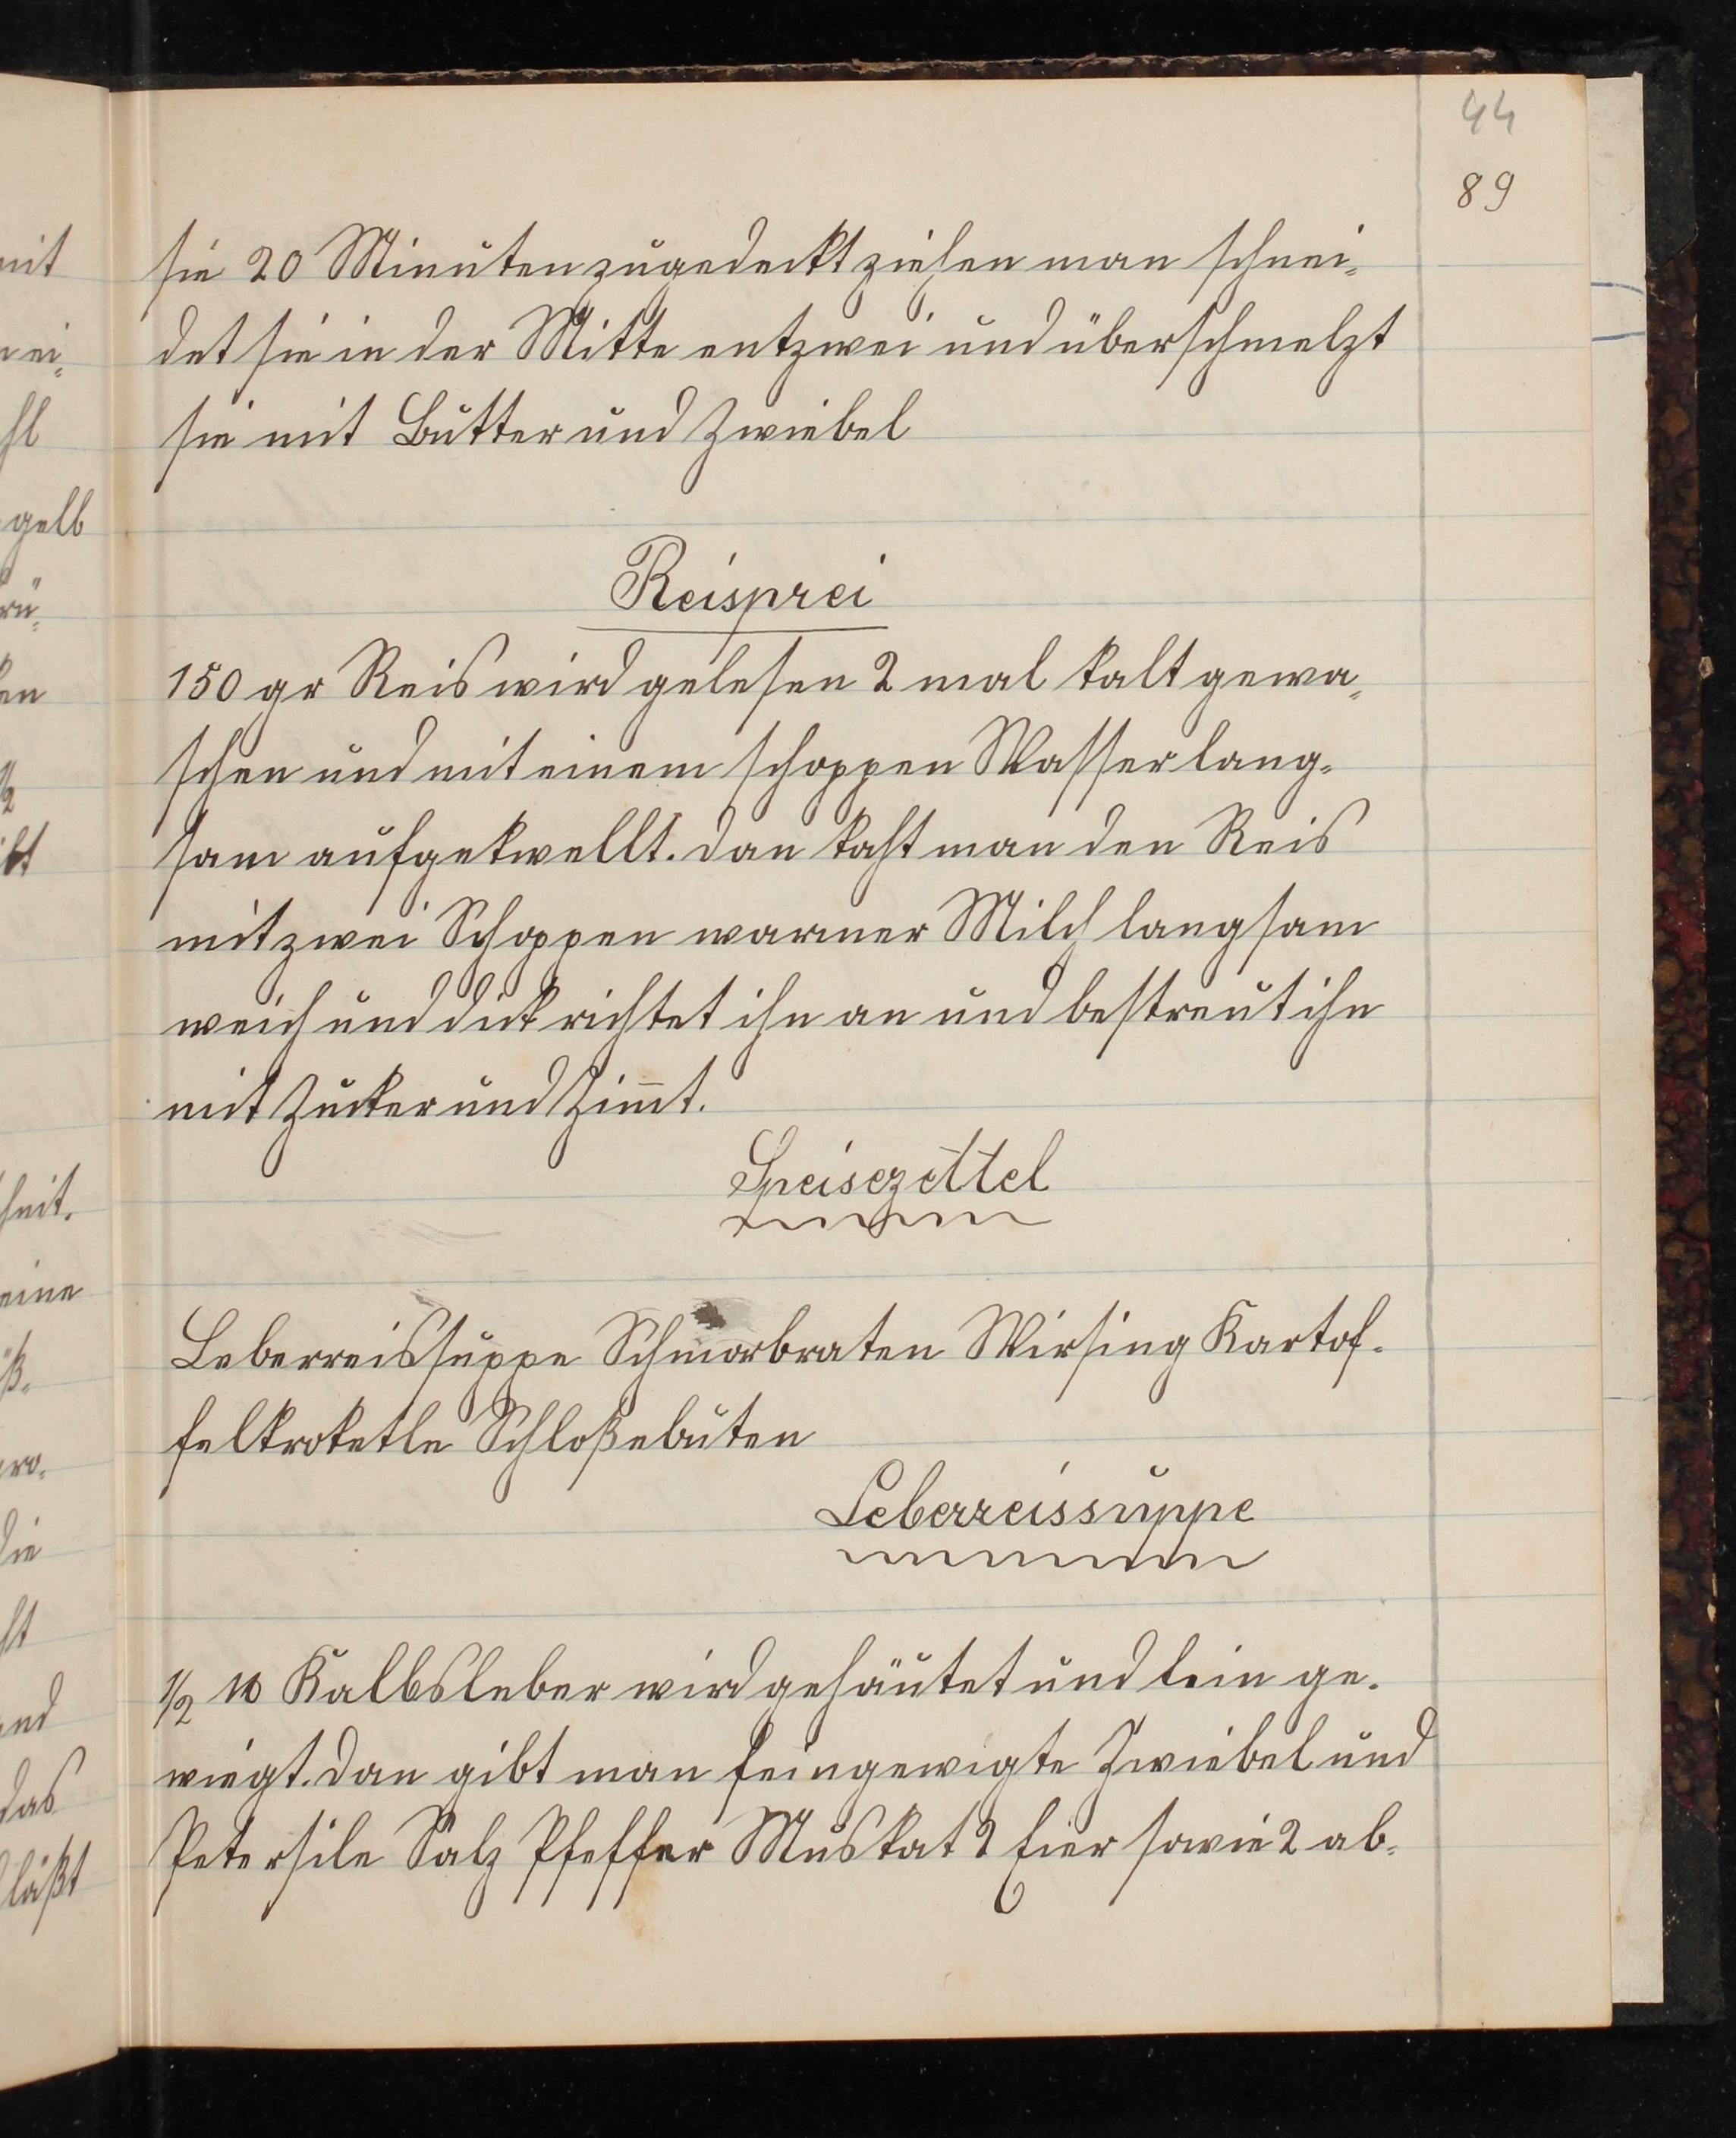 44
89
sie 20 Minuten zugedeckt ziehen man schnei-
det sie in der Mitte entzwei und überschmelzt
sie mit Butter und Zwiebel
Reisprei
150 gr Reis wird gelesen 2 mal kalt gewa-
schen und mit einem schoppen Wasser lang-
sam aufgekwellt. dan kocht man den Reis
mit zwei Schoppen warmer Milch langsam
weich und dick richtet ihn an und bestreut ihn
mit Zucker und Zim̅t.
Speisezettel
Leberreissuppe Schmorbraten Wirsing Kartof-
felkroketle Schloßebuten
Leberreissuppe
1/2 ℔ Kalbsleber wird gehäutet und fein ge-
wiegt. dan gibt man feingewigte Zwiebel und
Petersile Salz Pfeffer Muskat 2 Eier sowie 2 ab-